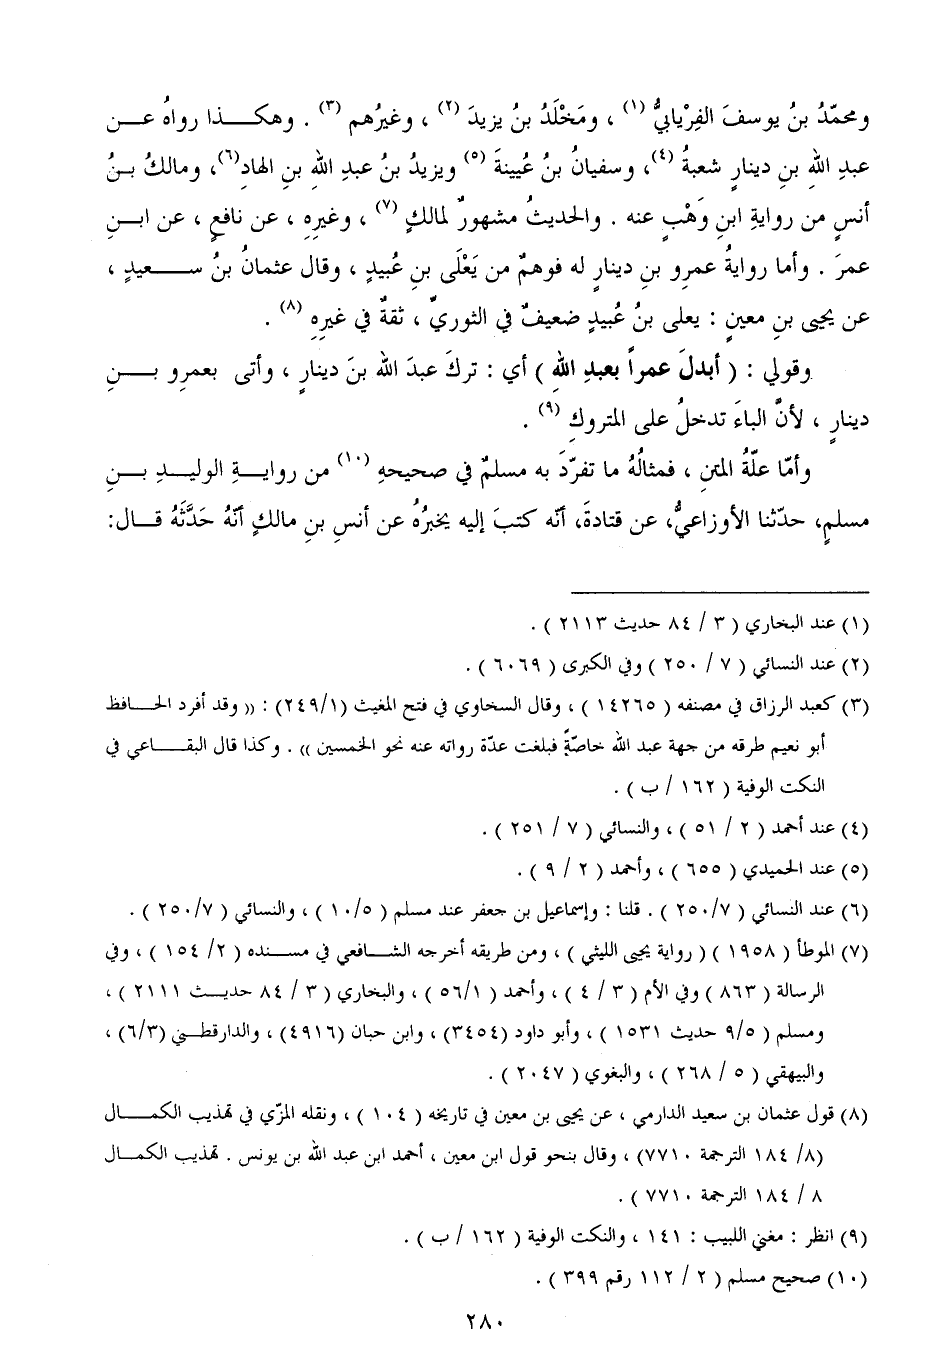 ومحمّدُ بنُ يوسفَ الفِرْيابيُّ (١) ، ومَخْلَدُ بنُ يزيدَ (٢) ، وغيرُهم (٣) . وهكـــذا رواهُ عـــن
عبدِ اللهِ بنِ دينارٍ شعبةُ (٤)، وسفيانُ بنُ عُيينةَ (٥) ويزيدُ بنُ عبدِ اللهِ بنِ الهادِ(٦)، ومالكُ بـنُ
أنسٍ من روايةِ ابنِ وَهْبٍ عنه . والحديثُ مشهورٌ لمالكٍ (٧) ، وغيرِهِ ، عن نافعٍ ، عن ابـنِ
عمرَ . وأما روايةُ عمرِو بنِ دينارٍ له فوهمٌ من يَعْلَى بنِ عُبيدٍ ، وقال عثمانُ بنُ ســـعيدٍ ،
عن يحيى بنِ معينٍ : يعلى بنُ عُبيدٍ ضعيفٌ في الثوريِّ ، ثقةٌ في غيرِهِ (٨) .
وقولي : ( أبدلَ عمراً بعبدِ اللهِ ) أي : تركَ عبدَ اللهِ بنَ دينارٍ ، وأتى بعمرِو بـــنِ
دينارٍ ، لأنَّ الباءَ تدخلُ على المتروكِ (٩) .
وأمّا علّةُ المتنِ ، فمثالُهُ ما تفرّدَ به مسلمٌ في صحيحهِ (١٠) من روايــةِ الوليــدِ بــنِ
مسلمٍ، حدّثنا الأوزاعيُّ، عن قتادةَ، أنّه كتبَ إليه يخبرُهُ عن أنسِ بنِ مالكٍ أنّهُ حَدَّثَهُ قــال:
(١) عند البخاري ( ٣ / ٨٤ حديث ٢١١٣ ) .
(٢) عند النسائي ( ٧ / ٢٥٠ ) وفي الكبرى ( ٦٠٦٩ ) .
(٣) كعبد الرزاق في مصنفه ( ١٤٢٦٥ ) ، وقال السخاوي في فتح المغيث (٢٤٩/١) : (( وقد أفرد الحــافظ
أبو نعيم طرقه من جهة عبد الله خاصّةً فبلغت عدّة رواته عنه نحو الخمسين )) . وكذا قال البقــاعي في
النكت الوفية ( ١٦٢ / ب ) .
(٤) عند أحمد ( ٢ / ٥١ ) ، والنسائي ( ٧ / ٢٥١ ) .
(٥) عند الحميدي ( ٦٥٥ ) ، وأحمد ( ٢ / ٩ ) .
(٦) عند النسائي ( ٢٥٠/٧ ) . قلنا : وإسماعيل بن جعفر عند مسلم ( ١٠/٥ ) ، والنسائي ( ٢٥٠/٧ ) .
(٧) الموطأ ( ١٩٥٨ ) ( رواية يحيى الليثي ) ، ومن طريقه أخرجه الشــافعي في مســنده ( ٢/ ١٥٤ ) ، وفي
الرسالة ( ٨٦٣ ) وفي الأم ( ٣ / ٤ ) ، وأحمد ( ٥٦/١ ) ، والبخاري ( ٣ / ٨٤ حديــث ٢١١١ ) ،
ومسلم ( ٩/٥ حديث ١٥٣١ ) ، وأبو داود (٣٤٥٤) ، وابن حبان (٤٩١٦) ، والدارقطــني (٦/٣) ،
والبيهقي ( ٥ / ٢٦٨ ) ، والبغوي ( ٢٠٤٧ ) .
(٨) قول عثمان بن سعيد الدارمي ، عن يحيى بن معين في تاريخه ( ١٠٤ ) ، ونقله المزّي في تهذيب الكمــال
(٨/ ١٨٤ الترجمة ٧٧١٠) ، وقال بنحو قول ابن معين ، أحمد ابن عبد الله بن يونس . تهذيب الكمــال
٨ / ١٨٤ الترجمة ٧٧١٠ ) .
(٩) انظر : مغني اللبيب : ١٤١ ، والنكت الوفية ( ١٦٢ / ب ) .
(١٠) صحيح مسلم ( ٢ / ١١٢ رقم ٣٩٩ ) .
٢٨٠